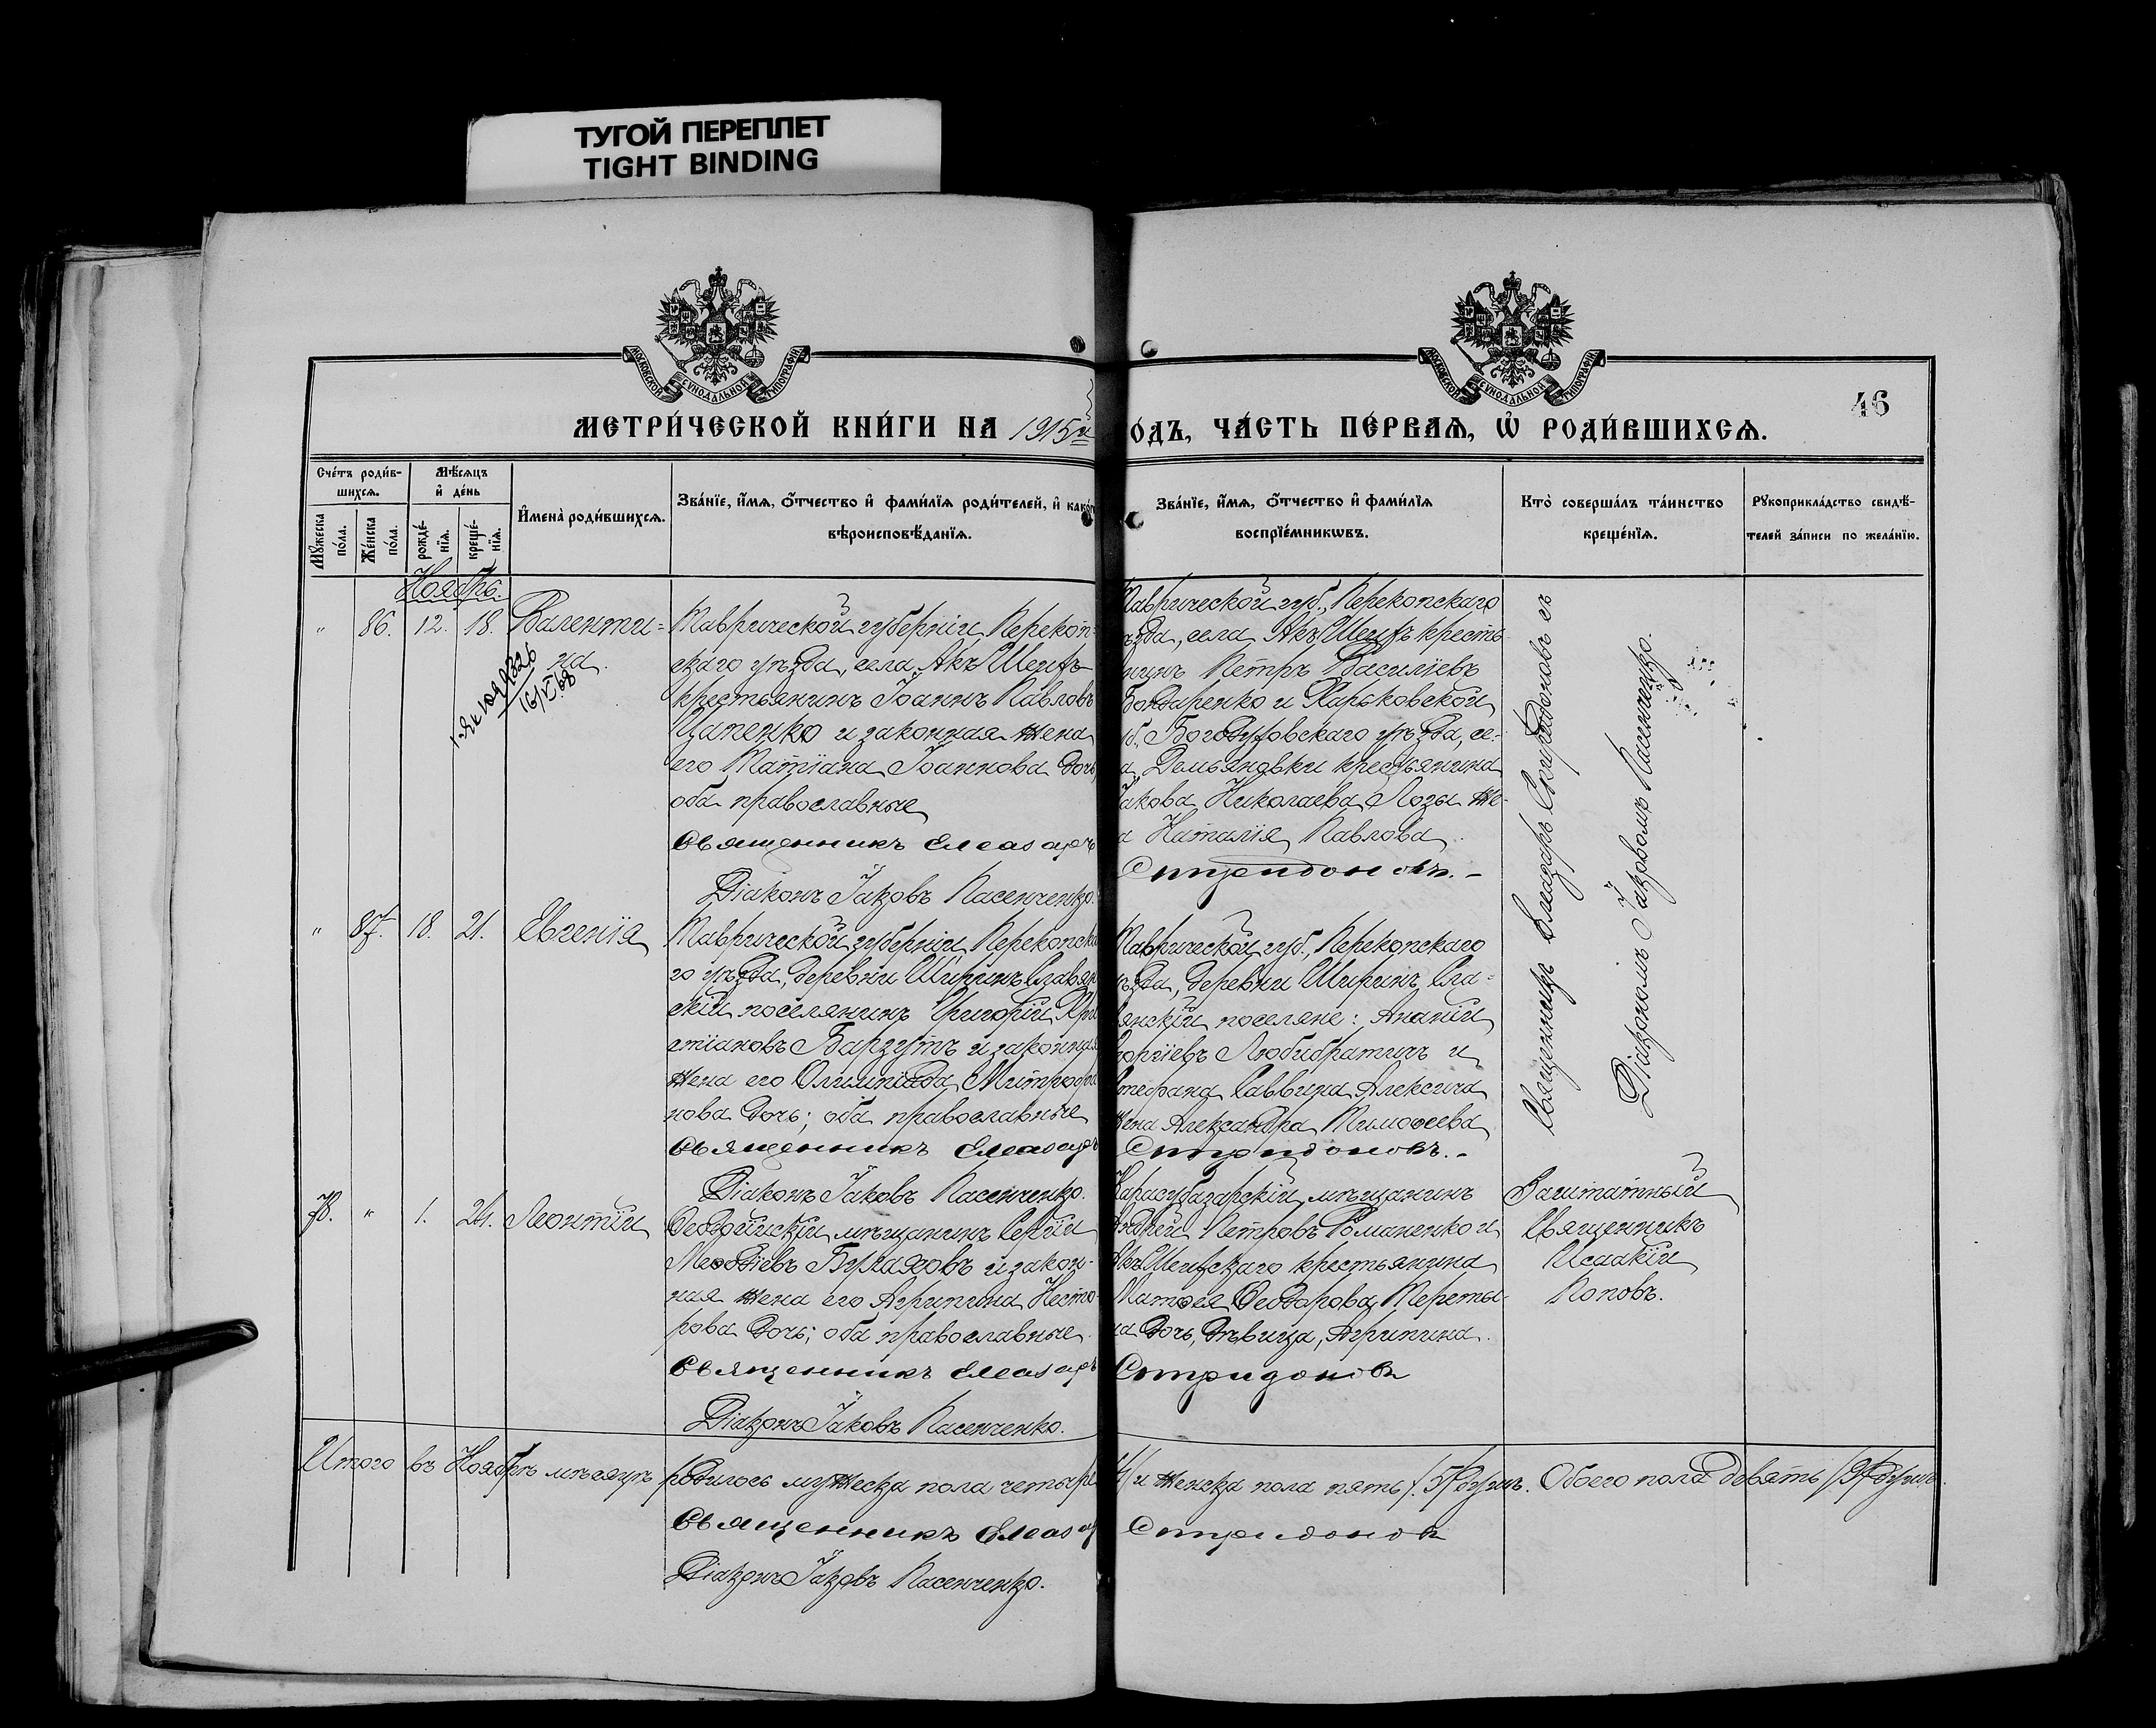 ТУГОЙ ПЕРЕПЛЕТ
TIGHT BINDING
МОСКОВСКОЙ СѴНОДАЛЬНОЙ ТИПОГРАФІИ
МОСКОВСКОЙ СѴНОДАЛЬНОЙ ТИПОГРАФІИ
46
МЕТРИ́ЧЕСКОЙ КНИ́ГИ НА 1915й
ОДЪ, ЧА́СТЬ ПЕ́РВАѦ, Ѡ РОДИ́ВШИХСѦ.
Сче́тъ роди́в-
шихсѧ.
Му́жеска по́ла.
Же́нска по́ла.
Мѣ́сѧцъ
и҆ де́нь
рожде́-
нїѧ.
креще́-
нїѧ.
И҆мена̀ роди́вшихсѧ.
Зва́нїе, и҆́мѧ, о҆́тчество и҆ фами́лїѧ роди́телей, и҆ како́г
вѣроисповѣ́данїѧ.
Зва́нїе, и҆́мѧ, о҆́тчество и҆ фами́лїѧ
воспрїе́мникѡвъ.
Кто̀ соверша́лъ та́инство
креще́нїѧ.
Рꙋкоприкла́дство свидѣ́-
телей за́писи по жела́нїю.
Ноябрь.
" 86. 12. 18. Валенти=
на.
16/V 68
Таврической губерніи, Перекоп=
скаго уѣзда, села Акъ Шеихъ
крестьянинъ Іоаннъ Павловъ
Цапенко и законная жена
его Татіана Іоаннова дочь,
оба православные
Священникъ Елеазаръ
Діаконъ Іаковъ Пасенченко.
Таврической губ., Перекопскаго
ѣзда, села Акъ Шеихъ кресть-
нинъ Петръ Василіевъ
Бондаренко и Харьковской
уб., Богодуховскаго уѣзда, се-
а Демьяновки крестьянина
Іакова Николаева Лозы же-
а Наталія Павлова.
Спиридоновъ.-
Священникъ Елеазаръ Спиридоновъ съ
Діакономъ Іаковомъ Пасенченко.
" 87. 18. 21. Евгенія
Таврической губерніи, Перекопска
го уѣзда, деревни Ширинъ Славян
скій поселянинъ Григорій Хри
стіановъ Баргутъ и законная
жена его Олимпіада Митрофа
нова дочь; оба православные
Священникъ Елеазаръ
Діаконъ Іаковъ Пасенченко.
Таврической губ., Перекопскаго
ѣзда, деревни Ширинъ, Сла=
вянскій поселяне: Ананій
Георгіевъ Любибратичъ и
Стефана Саввина Алексича
жена Александра Тимоѳеева
Спиридоновъ.-
78. " 1. 24. Леонтій
Ѳеодосійскій мѣщанинъ Сергій
Меѳодіевъ Булаховъ и закон-
ная жена его Агрипина Несто-
рова дочь; оба православные.
Священникъ Елеазаръ
Діаконъ Іаковъ Пасенченко.
Карасубазарскій мѣщанинъ
Андрей Петровъ Романенко и
Акъ Шеихскаго крестьянина
Матѳея Ѳеодорова Тереты-
на дочь, дѣвица, Агрипина.
Спиридоновъ
Заштатный
Священникъ
Исаакій
Поповъ.
Итого въ Ноябрѣ мѣсяцѣ родилось мужеска пола четыре
/4/ и женска пола пять /5/ душъ. Обоего пола девять /9/ душъ.
Священникъ Елеазар
Спиридоновъ
Діаконъ Іаковъ Пасенченко.